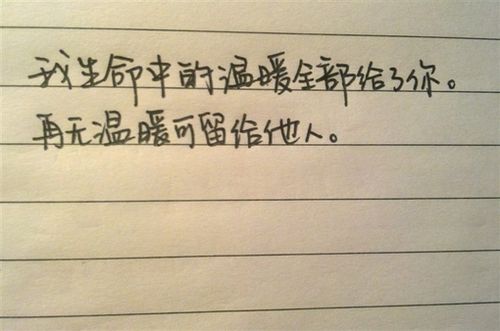 我生命中的温暖全部给了你。
再无温暖可留给他人。